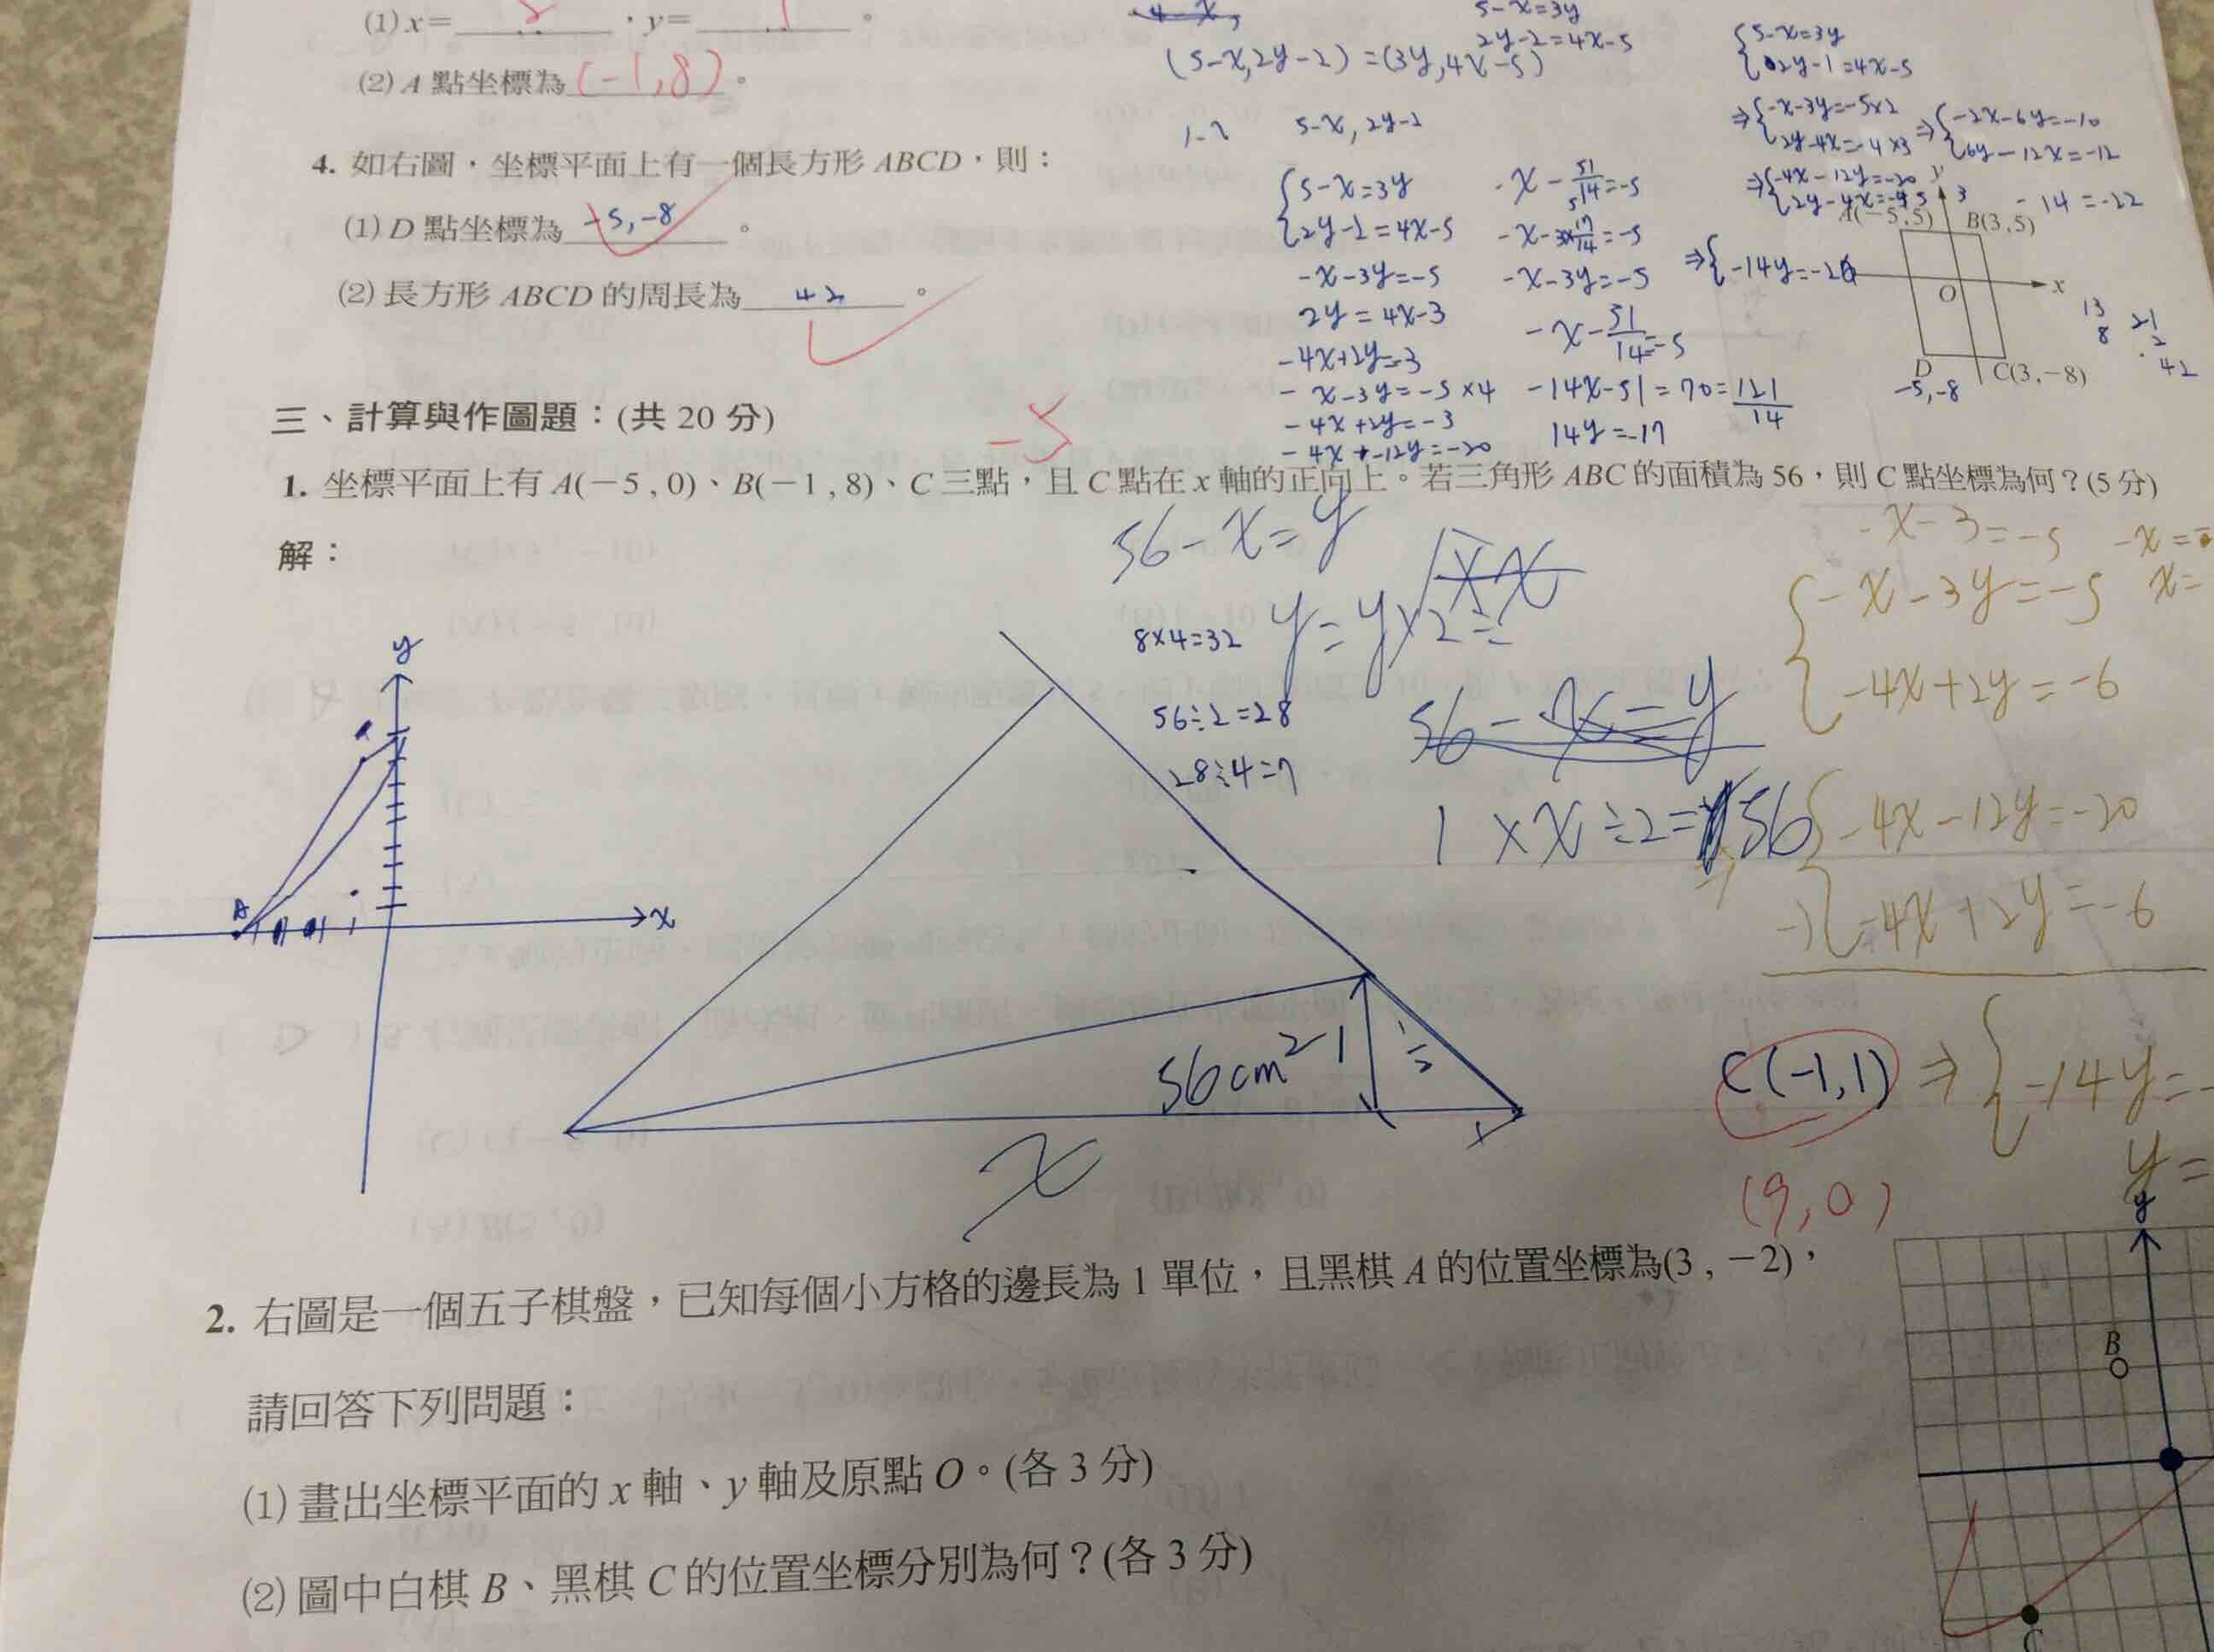 (1) x= 2 ，y= 1 。
(2) A 點坐標為 (-1,8) 。
4. 如右圖，坐標平面上有一個長方形 ABCD，則：
(1) D 點坐標為 -5,-8 。
(2) 長方形 ABCD 的周長為 42 。
5-x=3y
2y-2=4x-5
(5-x,2y-2)=(3y,4x-5)
5-x, 2y-2
{5-x=3y
2y-2=4x-5
-x-3y=-5
2y=4x-3
-4x+2y=-3
-x-3y=-5×4
-4x+2y=-3
-4x+-12y=-20
-x-51/14=-5
-x-3×17/14=-5
-x-3y=-5
-x-51/14=-5
-14x-51=70=121/14
14y=-17
{5-x=3y
2y-1=4x-5
⇒{-x-3y=-5×2
2y-4x=-4×3
⇒{-2x-6y=-10
6y-12x=-12
⇒{-4x-12y=-20
-14=-22
⇒{-14y=-26
y
3
A(−5,5)
B(3,5)
O
x
D
-5,-8
C(3,−8)
13
8
21
2
42
三、計算與作圖題：(共 20 分)
-5
1. 坐標平面上有 A(−5 , 0)、B(−1 , 8)、C 三點，且 C 點在 x 軸的正向上。若三角形 ABC 的面積為 56，則 C 點坐標為何？(5 分)
解：
56-x=y
8×4=32
56÷2=28
28÷4=7
56-x=y
1×x÷2=56
-x-3=-5
{-x-3y=-5
-4x+2y=-6
{-4x-12y=-20
-){-4x+2y=-6
⇒{-14y=-
y=
y
x
A
56cm²
1
x
C(-1,1)
(9,0)
2. 右圖是一個五子棋盤，已知每個小方格的邊長為 1 單位，且黑棋 A 的位置坐標為(3 , −2)，
請回答下列問題：
(1) 畫出坐標平面的 x 軸、y 軸及原點 O。(各 3 分)
(2) 圖中白棋 B、黑棋 C 的位置坐標分別為何？(各 3 分)
y
B
C